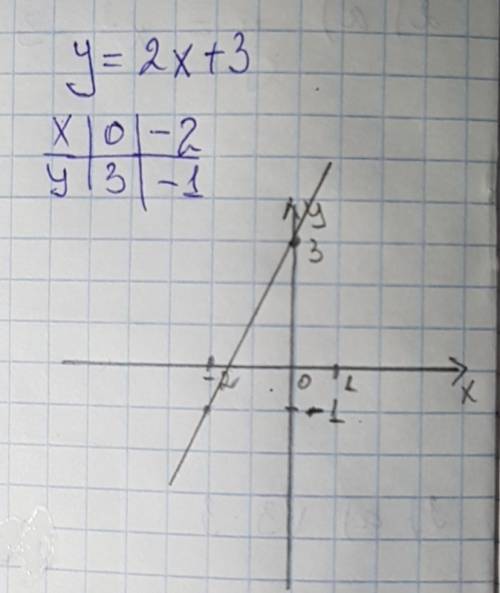 y = 2x + 3
x | 0 | -2
y | 3 | -1
y
3
-2 0 1
x
-1